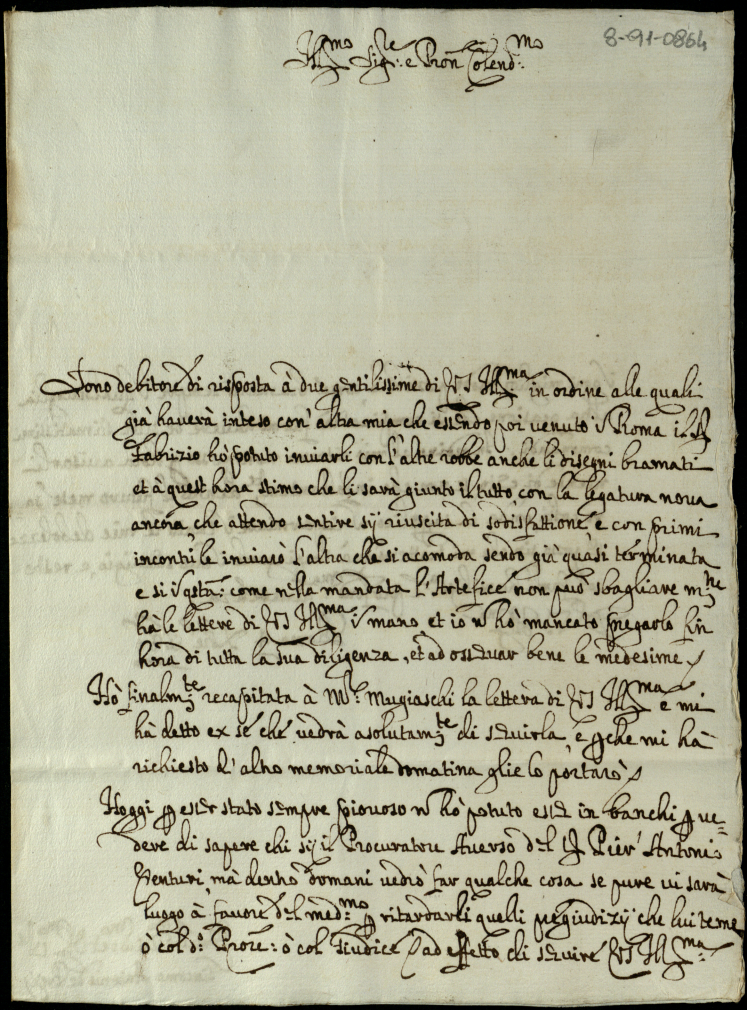 8-91-0864
Ill:mo Sig:re e Pron Colend:mo
Sono debitore di risposta à due gentilissime di VS Ill:ma in ordine alle quali
già haverà inteso con' altra mia che essendo poi venuto i Roma il S
Fabrizio hò potuto inviarli con l'altre robbe anche li disegni bramati
et à quest hora stimo che li sarà giunto il tutto con la legatura nova
ancora, che attendo sentire sij riuscita di sodisfattione, e con primi
incontri le inviarò l'altra che si acomoda sendo già quasi terminata
e si i qsta: come nella mandata l'Artefice non può sbagliare m:tre
hà le lettere di VS Ill:ma i mano et io n hò mancato pregarlo fin
hora di tutta la sua diligenza, et ad osservar bene le medesime
Hò finalm:te recapitata à M:r Mugiaschi la lettera di VS Ill:ma e mi
hà detto ex se che vedrà asolutam:te di servirla, e pche mi hà
richiesto d'altro memoriale domatina glie lo portarò
Hoggi p esser stato sempre piovoso n hò potuto esser in banchi p ve=
dere di sapere chi sij il Procuratore Averso del S Pier' Antonio
Venturi, mà dentro domani vedrò far qualche cosa se pure vi sarà
luogo à favore del med:mo p ritardarli quelli pregiudizij che lui teme
ò col d:o Procre: ò col Giudice p ad effetto di servire VS Ill:ma